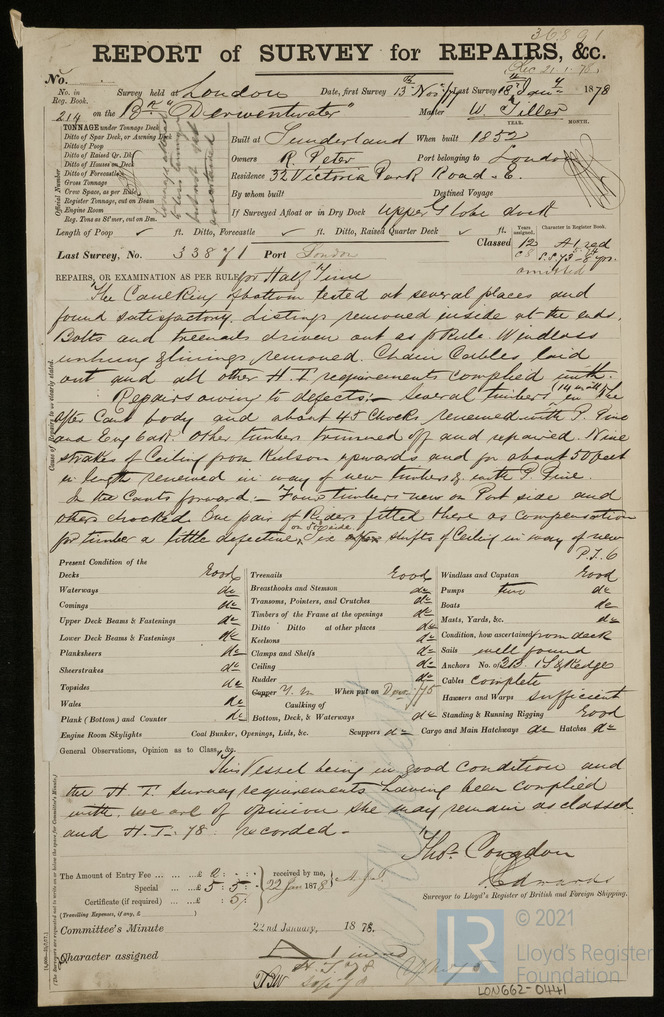 36891
REPORT of SURVEY for REPAIRS, &c.
Rec 21.1.78
No.
No. in Reg. Book. Survey held at London Date, first Survey 13th Nov/77 Last Survey 18th Jany 1878
214 on the Bn "Derwentwater" Master W. Tiller
YEAR. MONTH.
TONNAGE under Tonnage Deck
Ditto of Spar Deck, or Awning Deck
Ditto of Poop
Ditto of Raised Qr. Dk
Ditto of Houses on Deck
Ditto of Forecastle
Gross Tonnage
Crew Space, as per Rule
Register Tonnage, cut on Beam
Engine Room
Reg. Tons as St'mr, cut on Bm.
Official Number
Built at Sunderland When built 1852
Owners R Peter Port belonging to London
Residence 32 Victoria Park Road. E.
By whom built Destined Voyage
If Surveyed Afloat or in Dry Dock Upper Globe dock
Length of Poop ft. Ditto, Forecastle ft. Ditto, Raised Quarter Deck ft.
Years assigned. Character in Register Book.
Classed 12 A1 red
Last Survey, No. 33871 Port London
omitted
REPAIRS, OR EXAMINATION AS PER RULE, for Half Time
The Caulking of bottom tested at several places and
found satisfactory. Listings removed inside at the ends.
Bolts and treenails driven out as pr Rule. Windlass
unhung & linings removed. Chain Cables laid
out and all other H.T requirements complied with.
Repairs owing to defects:- Several timbers (14 in all) in the
after Cant body and about 45 Chocks renewed with P. Pine
and Eng Oak. Other timbers trimmed off and repaired. Nine
strakes of Ceiling from Keelson upwards and for about 50 feet
in length renewed in way of new timbers &c with P. Pine.
In the Cants forward:- Four timbers new on Port side and
others chocked. One pair of Riders fitted there as compensation
for timber a little defective on St side. Six shifts of Ceiling in way of new
P.T.O
Cause of Repairs to be clearly stated.
Present Condition of the
Decks Good
Waterways do
Comings do
Upper Deck Beams & Fastenings do
Lower Deck Beams & Fastenings do
Planksheers do
Sheerstrakes do
Topsides do
Wales do
Plank (Bottom) and Counter do
Engine Room Skylights
Treenails Good
Breasthooks and Stemson do
Transoms, Pointers, and Crutches do
Timbers of the Frame at the openings do
Ditto Ditto at other places do
Keelsons do
Clamps and Shelfs do
Ceiling do
Rudder do
Copper Y.M When put on /75
Caulking of
Bottom, Deck, & Waterways do
Coal Bunker, Openings, Lids, &c. Scuppers do
Windlass and Capstan Good
Pumps two do
Boats do
Masts, Yards, &c. do
Condition, how ascertained from deck
Sails well found
Anchors No. of 2B. 1S & Kedge
Cables complete
Hawsers and Warps sufficient
Standing & Running Rigging Good
Cargo and Main Hatchways do Hatches do
General Observations, Opinion as to Class, &c.
This Vessel being in good condition and
the H.T. Survey requirements having been complied
with. we are of opinion she may remain as classed
and H.T. 78 recorded.-
Thos. Congdon
Edwards
Surveyor to Lloyd's Register of British and Foreign Shipping.
The Amount of Entry Fee ... £ 2 : - : -
Special ... £ 5 : 5 : -
Certificate (if required) ... £ : 5 :
received by me,
22 Jan 1878
(Travelling Expenses, if any, £ )
Committee's Minute 22nd January, 1878.
Character assigned
H.T. 78
© 2021
LR
Lloyd's Register
Foundation
LON662-0441